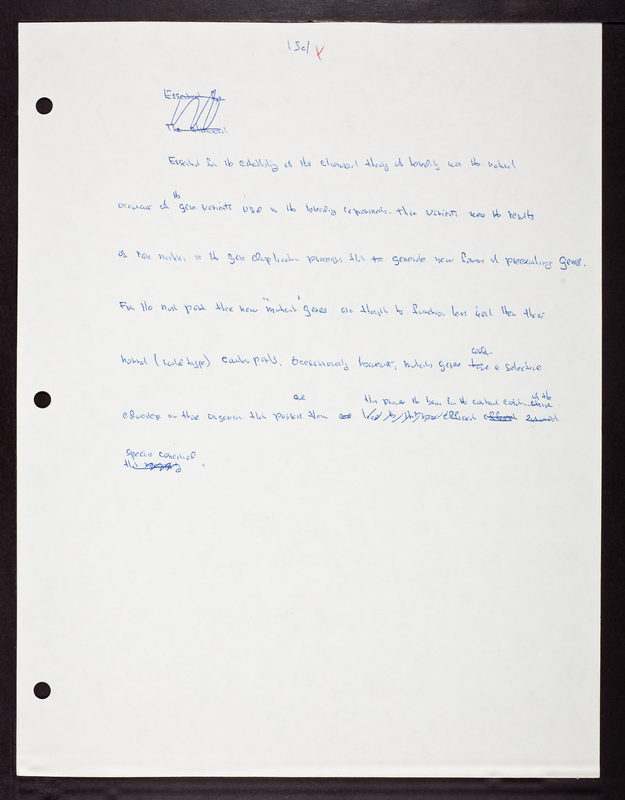 Essential for
The
Essential for the establishing of the chromosomal theory of heredity was the natural
occurrence of the gene variants used in the breeding experiments. These variants were the results
of rare mistakes in the gene duplication process that generate new forms of preexisting genes.
For the most part these new "mutant" genes are thought to function less well than their
normal (wild type) counterparts. Occasionally however, mutant genes confer a selective
advantage on those organisms that possess them and this provides the basis for the continual evolution of the
species concerned.